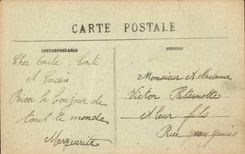 CARTE POSTALE
CORRESPONDANCE
ADRESSE
Cher Oncle, Tante
et Cousin
Bien le bonjour de
tout le monde
Marguerite
Monsieur et Madame
Victor Paternotte
et leur fils
Rue Jean Jaurès